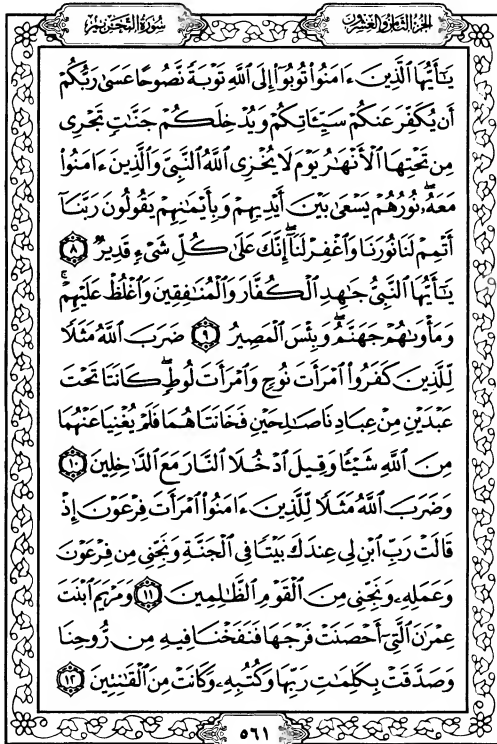 سُورَةُ التَّحْرِيمِ الجُزْءُ الثَّامِنُ وَالعِشْرُونَ
يَٰٓأَيُّهَا ٱلَّذِينَ ءَامَنُوا۟ تُوبُوٓا۟ إِلَى ٱللَّهِ تَوْبَةً نَّصُوحًا عَسَىٰ رَبُّكُمْ
أَن يُكَفِّرَ عَنكُمْ سَيِّـَٔاتِكُمْ وَيُدْخِلَكُمْ جَنَّٰتٍ تَجْرِى
مِن تَحْتِهَا ٱلْأَنْهَٰرُ يَوْمَ لَا يُخْزِى ٱللَّهُ ٱلنَّبِىَّ وَٱلَّذِينَ ءَامَنُوا۟
مَعَهُۥ ۖ نُورُهُمْ يَسْعَىٰ بَيْنَ أَيْدِيهِمْ وَبِأَيْمَٰنِهِمْ يَقُولُونَ رَبَّنَآ
أَتْمِمْ لَنَا نُورَنَا وَٱغْفِرْ لَنَآ ۖ إِنَّكَ عَلَىٰ كُلِّ شَىْءٍ قَدِيرٌ ٨
يَٰٓأَيُّهَا ٱلنَّبِىُّ جَٰهِدِ ٱلْكُفَّارَ وَٱلْمُنَٰفِقِينَ وَٱغْلُظْ عَلَيْهِمْ ۚ
وَمَأْوَىٰهُمْ جَهَنَّمُ ۖ وَبِئْسَ ٱلْمَصِيرُ ٩ ضَرَبَ ٱللَّهُ مَثَلًا
لِّلَّذِينَ كَفَرُوا۟ ٱمْرَأَتَ نُوحٍ وَٱمْرَأَتَ لُوطٍ ۖ كَانَتَا تَحْتَ
عَبْدَيْنِ مِنْ عِبَادِنَا صَٰلِحَيْنِ فَخَانَتَاهُمَا فَلَمْ يُغْنِيَا عَنْهُمَا
مِنَ ٱللَّهِ شَيْـًٔا وَقِيلَ ٱدْخُلَا ٱلنَّارَ مَعَ ٱلدَّٰخِلِينَ ١٠
وَضَرَبَ ٱللَّهُ مَثَلًا لِّلَّذِينَ ءَامَنُوا۟ ٱمْرَأَتَ فِرْعَوْنَ إِذْ
قَالَتْ رَبِّ ٱبْنِ لِى عِندَكَ بَيْتًا فِى ٱلْجَنَّةِ وَنَجِّنِى مِن فِرْعَوْنَ
وَعَمَلِهِۦ وَنَجِّنِى مِنَ ٱلْقَوْمِ ٱلظَّٰلِمِينَ ١١ وَمَرْيَمَ ٱبْنَتَ
عِمْرَٰنَ ٱلَّتِىٓ أَحْصَنَتْ فَرْجَهَا فَنَفَخْنَا فِيهِ مِن رُّوحِنَا
وَصَدَّقَتْ بِكَلِمَٰتِ رَبِّهَا وَكُتُبِهِۦ وَكَانَتْ مِنَ ٱلْقَٰنِتِينَ ١٢
٥٦١